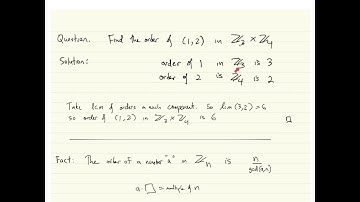 Question. Find the order of (1,2) in ℤ₃ × ℤ₄
Solution: order of 1 in ℤ₃ is 3
order of 2 is ℤ₄ is 2
Take lcm of orders in each component. So lcm(3,2)=6
so order of (1,2) in ℤ₃ × ℤ₄ is 6 □
Fact: The order of a number "a" in ℤₙ is n/gcd(a,n)
a·□ = multiple of n